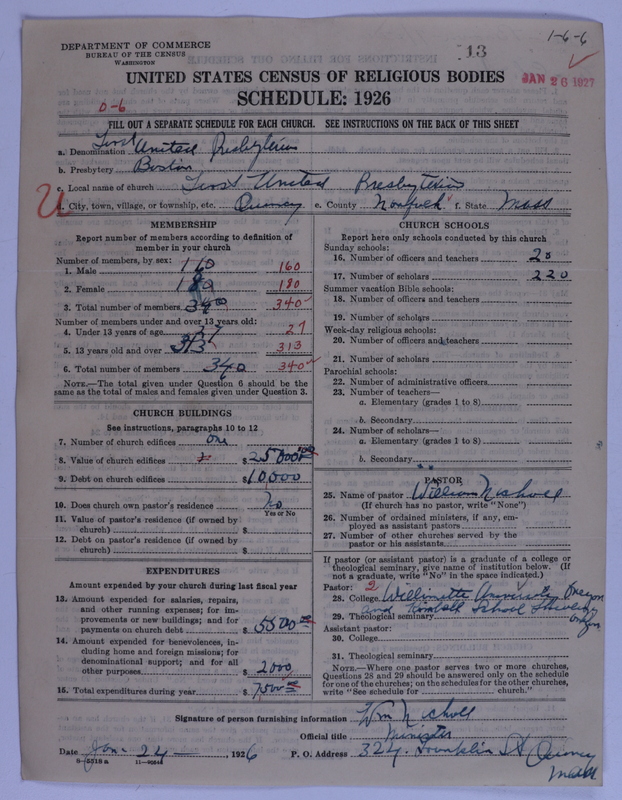 1-6-6
DEPARTMENT OF COMMERCE
BUREAU OF THE CENSUS
WASHINGTON
13
UNITED STATES CENSUS OF RELIGIOUS BODIES
JAN 26 1927
SCHEDULE: 1926
0-6
FILL OUT A SEPARATE SCHEDULE FOR EACH CHURCH. SEE INSTRUCTIONS ON THE BACK OF THIS SHEET
a. Denomination First United Presbyterian
b. Presbytery Boston
c. Local name of church First United Presbyterian
d. City, town, village, or township, etc. Quincy e. County Norfolk f. State Mass
MEMBERSHIP
Report number of members according to definition of
member in your church
Number of members, by sex:
1. Male 160 160
2. Female 180 180
3. Total number of members 340 340
Number of members under and over 13 years old:
4. Under 13 years of age 27 27
5. 13 years old and over 313 313
6. Total number of members 340 340
NOTE.—The total given under Question 6 should be the
same as the total of males and females given under Question 3.
CHURCH BUILDINGS
See instructions, paragraphs 10 to 12
7. Number of church edifices one
8. Value of church edifices $25000.00
9. Debt on church edifices $10,000
10. Does church own pastor's residence No
Yes or No
11. Value of pastor's residence (if owned by
church) $
12. Debt on pastor's residence (if owned by
church) $
EXPENDITURES
Amount expended by your church during last fiscal year
13. Amount expended for salaries, repairs,
and other running expenses; for im-
provements or new buildings; and for
payments on church debt $5500.00
14. Amount expended for benevolences, in-
cluding home and foreign missions; for
denominational support; and for all
other purposes $2000
15. Total expenditures during year $7500.00
CHURCH SCHOOLS
Report here only schools conducted by this church
Sunday schools:
16. Number of officers and teachers 25
17. Number of scholars 220
Summer vacation Bible schools:
18. Number of officers and teachers
19. Number of scholars
Week-day religious schools:
20. Number of officers and teachers
21. Number of scholars
Parochial schools:
22. Number of administrative officers
23. Number of teachers—
a. Elementary (grades 1 to 8)
b. Secondary
24. Number of scholars—
a. Elementary (grades 1 to 8)
b. Secondary
PASTOR
25. Name of pastor William Nicholl
(If church has no pastor, write "None")
26. Number of ordained ministers, if any, em-
ployed as assistant pastors
27. Number of other churches served by the
pastor or his assistants
If pastor (or assistant pastor) is a graduate of a college or
theological seminary, give name of institution below. (If
not a graduate, write "No" in the space indicated.)
Pastor: 2
28. College Willamette University Oregon
and Kimball School
29. Theological seminary
Assistant pastor:
30. College
31. Theological seminary
NOTE.—Where one pastor serves two or more churches,
Questions 28 and 29 should be answered only on the schedule
for one of the churches; on the schedules for the other churches,
write "See schedule for church."
Signature of person furnishing information Wm Nicholl
Official title Minister
Date Jan. 24 1926 P. O. Address 324 Franklin St Quincy
Mass
8-5518 a